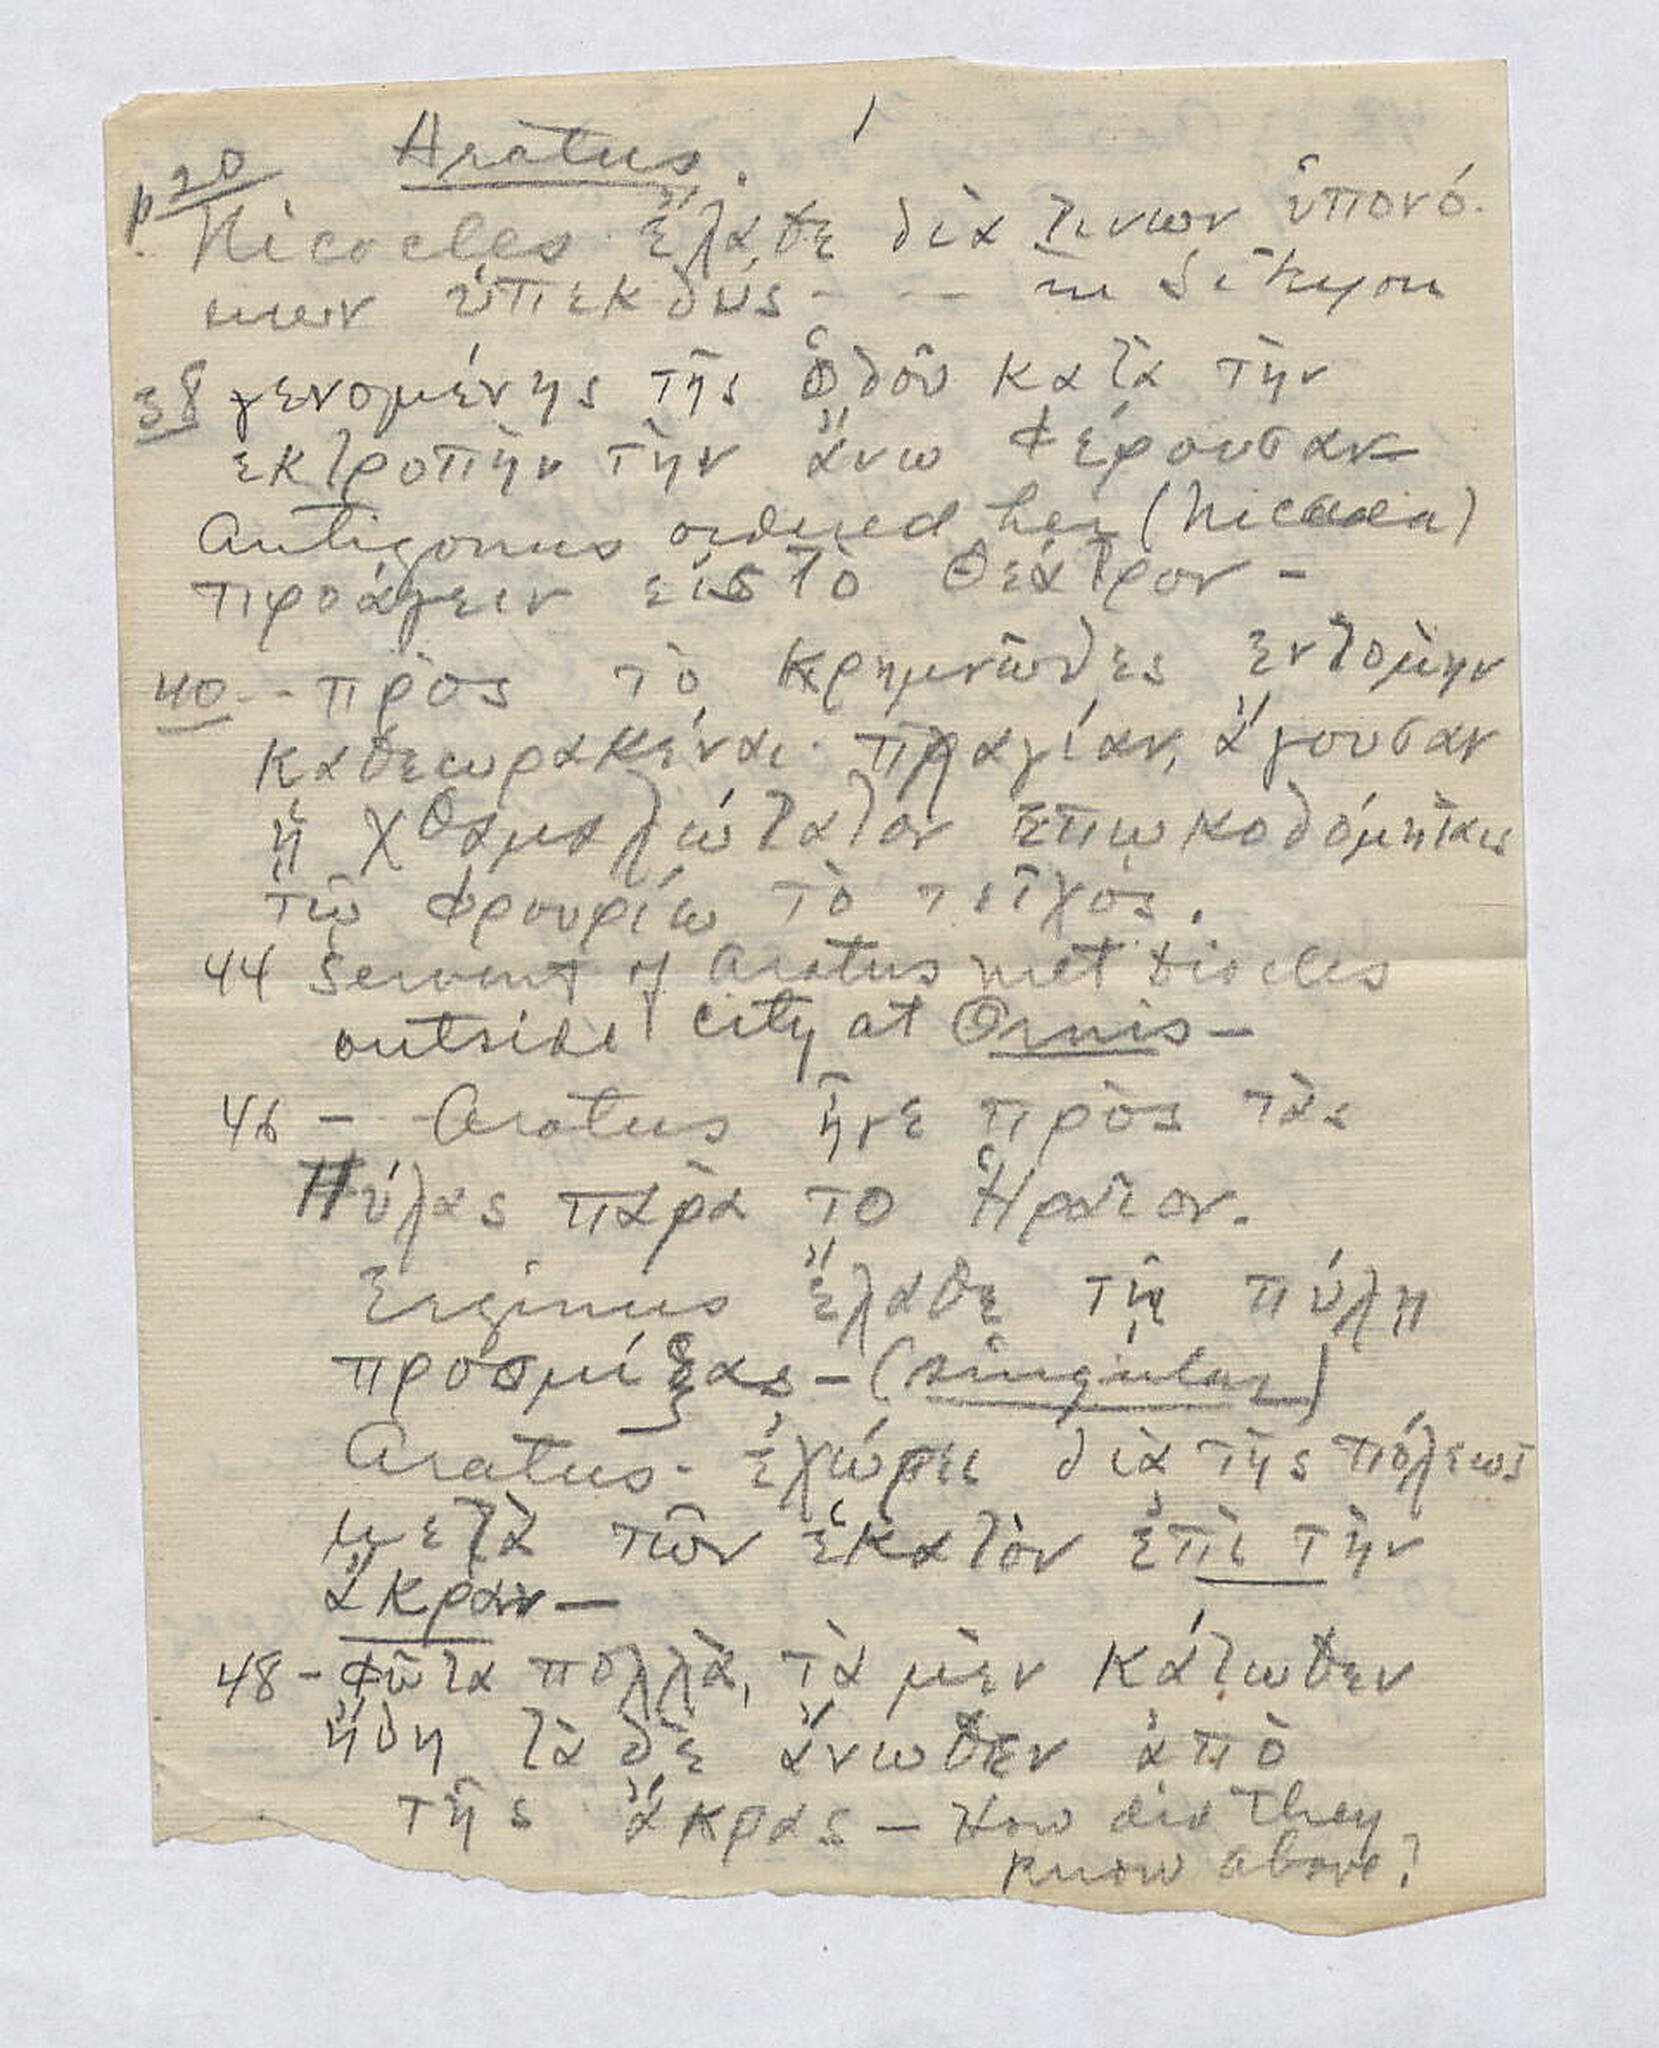 Aratus. 1
p 20
Nicocles ἔλαθε διὰ τινων ὑπονό-
μων ὑπεκδύς - - - in Sikyon
38 γενομένης τῆς ὁδοῦ κατὰ τὴν
εκτροπὴν τὴν ἄνω φέρουσαν
Antigonus ordered her (Nicaea)
προάγειν εἰς τὸ θέατρον -
40 - - πρὸς τὸ κρημνῶδες εντομὴν
καθεωρακέναι πλαγίαν, ἄγουσαν
ᾗ χθαμαλώτατον επῳκοδόμηται
τῷ φρουρίῳ τὸ τεῖχος.
44 Servant of Aratus met Diocles
outside city at Ornis -
46 - - Aratus ἦγε πρὸς τὰς
Πύλας παρὰ το Ἡραῖον.
Erginus ἔλαθε τῇ πύλῃ
προσμίξας - (singular)
Aratus - ἐχώρει διὰ τῆς πόλεως
μετὰ τῶν ἑκατὸν ἐπὶ τὴν
ἄκραν -
48 - φῶτα πολλὰ, τὰ μὲν κάτωθεν
ἤδη τὰ δὲ ἄνωθεν ἀπὸ
τῆς ἄκρας - How did they
know above?